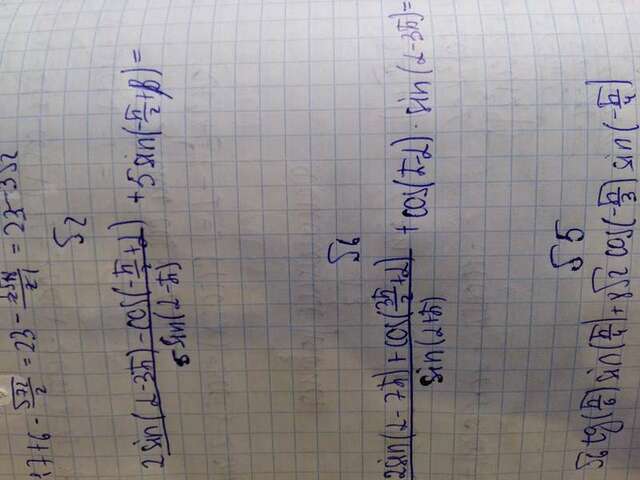 17+6 - √72/2 = 23 - = 23 - 3√2
√2
(2sin(α-3π) - cos(-π/2+α))/(5sin(α-π)) + 5sin(-π/2+β) =
√6
(2sin(α-7π) + cos(3π/2+α))/(sin(α+π)) + cos(π-α) · sin(α-3π) =
√5
√6 tg(π/6) sin(π/4) + 8√2 cos(-π/3) sin(-π/4)